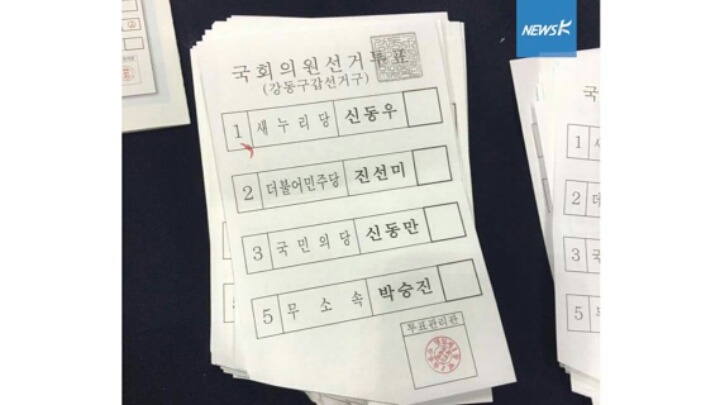 NEWSK
국회의원선거투표
(강동구갑선거구)
1 새누리당 신동우
2 더불어민주당 진선미
3 국민의당 신동만
5 무소속 박승진
투표관리관
국
1 새
2 더
3 국
5 무